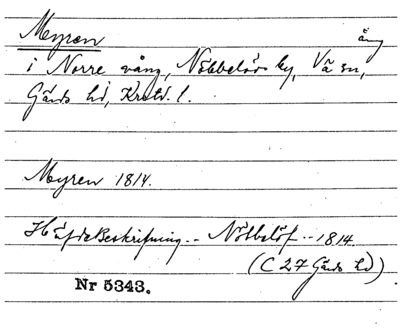 Myren
äng
i Norre vång, Nöbbelövs by, Vä sn,
Gärds hd, Krstd. l.
Myren 1814.
Häfdebeskrifning -- Nöbbelöf -- 1814.
(C 27 Gärds hd)
Nr 5343.